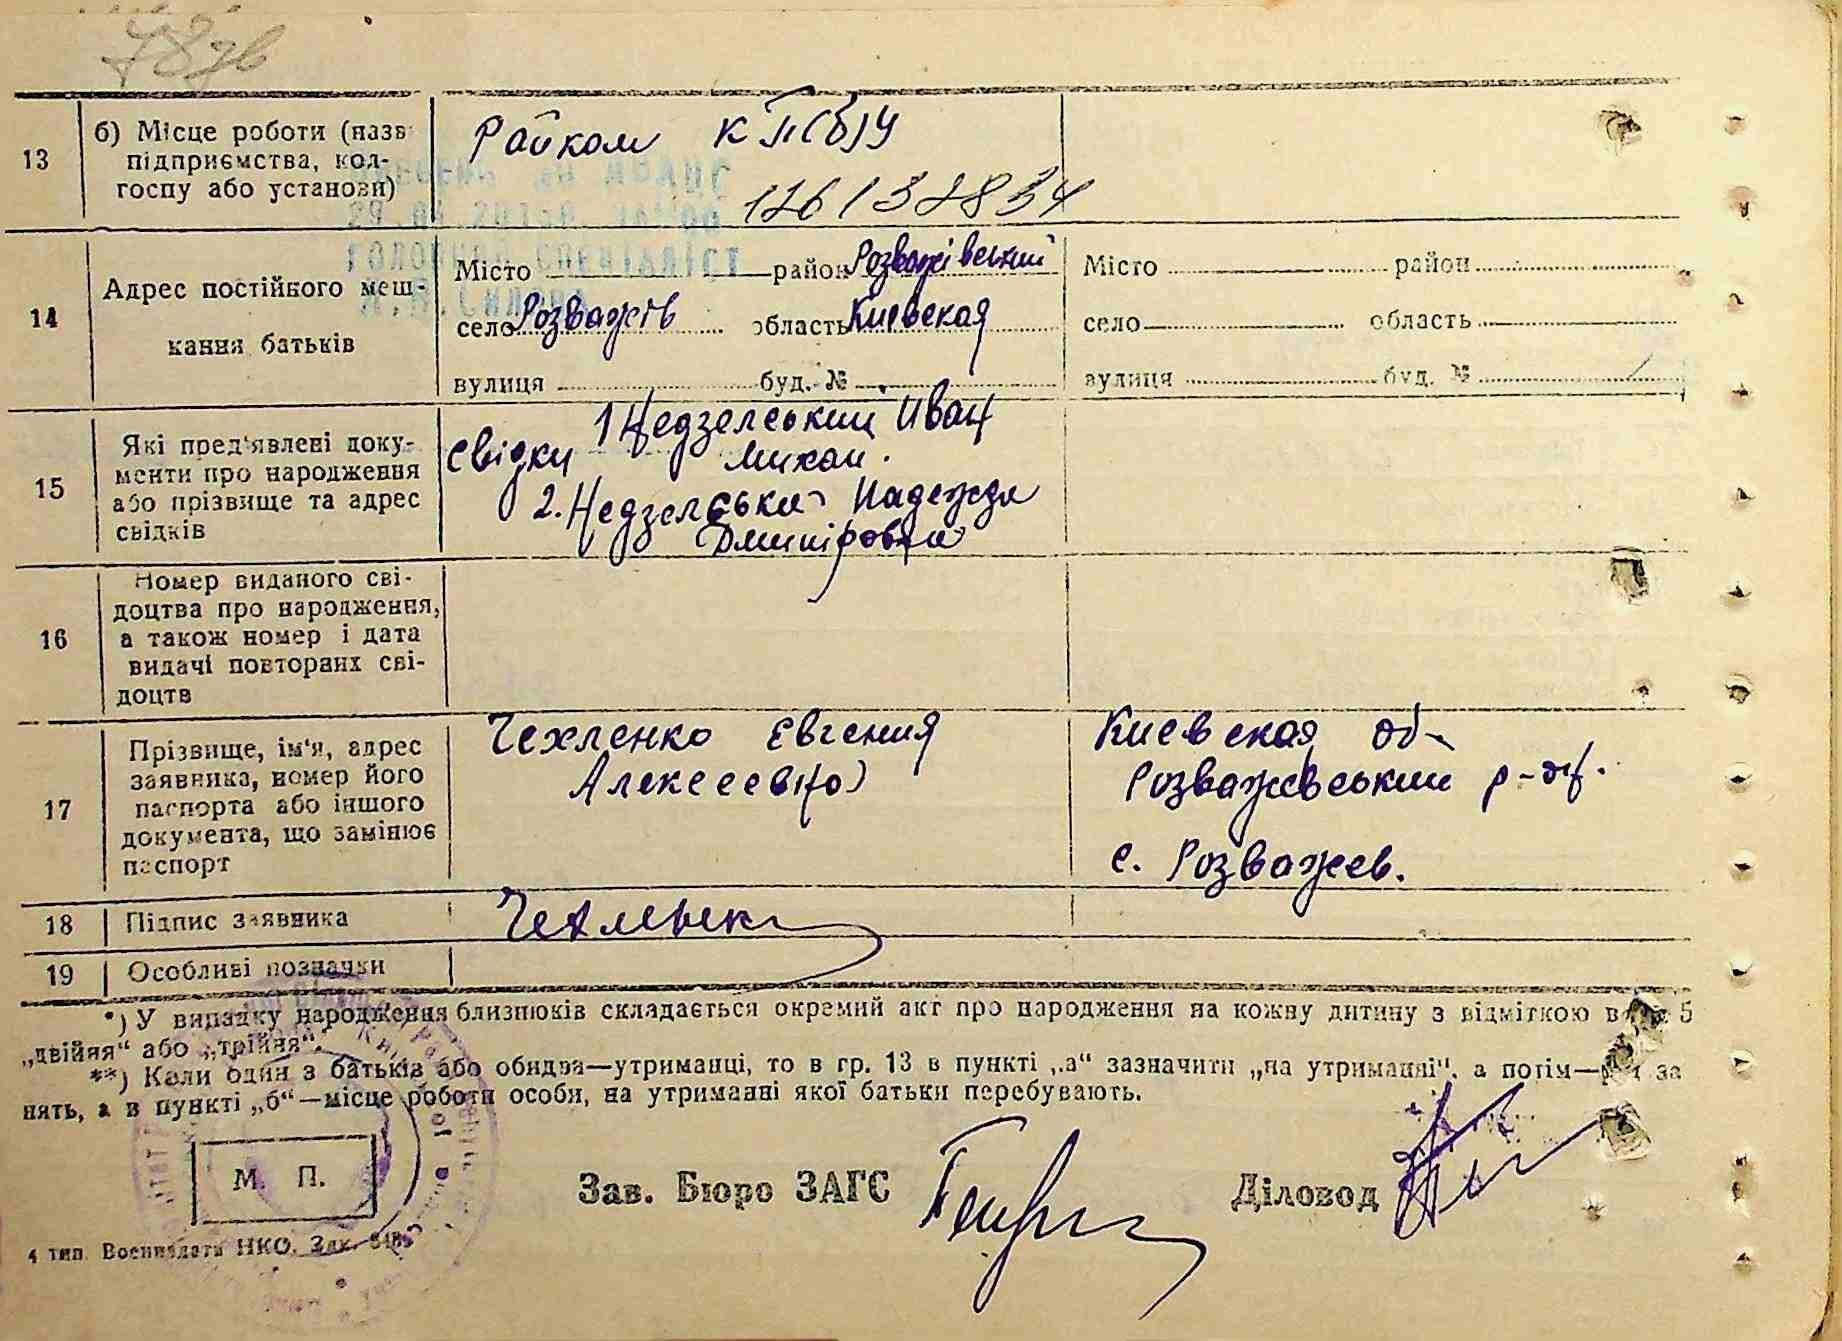 13
б) Місце роботи (назв
підприємства, кол-
госпу або установи)
Райком КП(б)У
14
Адрес постійного меш-
кання батьків
Місто район Розважівський
село Розважів область Киевская
вулиця буд. №
Місто район
село область
вулиця буд. №
15
Які пред'явлені доку-
менти про народження
або прізвище та адрес
свідків
1 Недзелський Иван
Свідки Михаи.
2. Недзелська Надежда
Дмитровна
16
Номер виданого сві-
доцтва про народження,
а також номер і дата
видачі повторних сві-
доцтв
17
Прізвище, ім'я, адрес
заявника, номер його
паспорта або іншого
документа, що замінює
паспорт
Чехленко Евгения
Алексеевна
Киевская об-
Розважевський р-н.
с. Розважев.
18
Підпис заявника
19
Особливі позначки
*) У випадку народження близнюків складається окремий акт про народження на кожну дитину з відміткою в 5
„двійня“ або „трійня“.
**) Коли один з батьків або обидва—утриманці, то в гр. 13 в пункті „а“ зазначити „на утриманні“, а потім— за
нять, а в пункті „б“—місце роботи особи, на утриманні якої батьки перебувають.
М. П.
Зав. Бюро ЗАГС
Діловод
4 тип. Воениздата НКО. Зак.